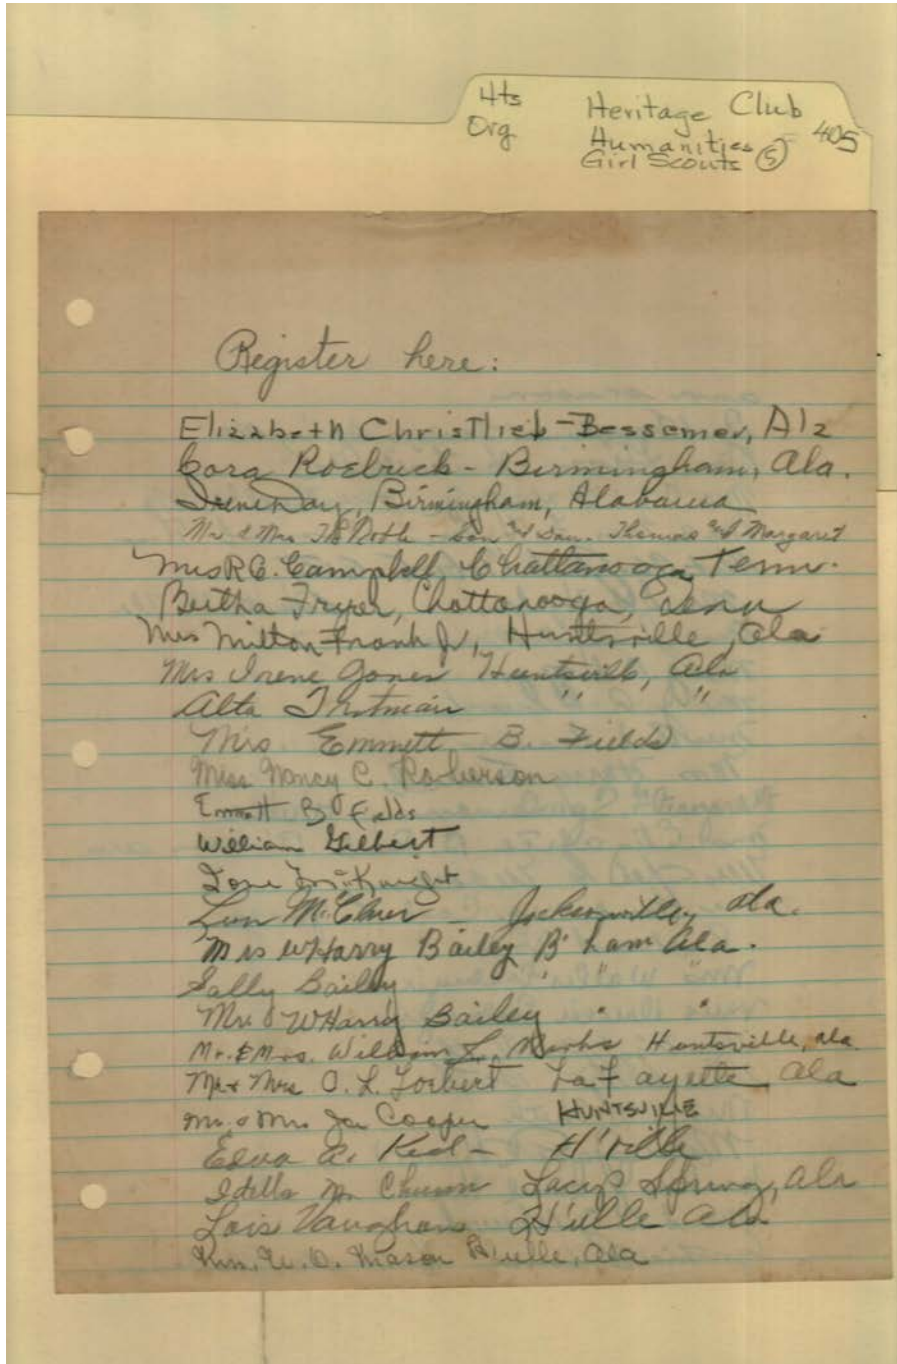 4ts Heritage Club
Org Humanities 405
Girl Scouts (5)
Register here:
Elizabeth Christlieb - Bessemer, Ala
Cora Roebuck - Birmingham, Ala.
Irene Day, Birmingham, Alabama
Mr & Mrs - Son and Dau. Thomas and Margaret
Mrs R.C. Campbell Chattanooga, Tenn.
Bertha Fryer, Chattanooga, Tenn
Mrs Milton Frank Jr, Huntsville, Ala
Mrs Irene Jones Huntsville, Ala
Alta " "
Mrs. Emmett B. Fields
Miss Nancy C. Roberson
Emmett B Fields
William Gilbert
McKnight
Jacksonville, Ala.
Mrs WHarry Bailey B'ham Ala.
Sally Bailey
Mr. WHarry Bailey " "
Mr. & Mrs. William L. Marks Huntsville, Ala.
Mr & Mrs O. L. Torbert LaFayette Ala
Mr. & Mrs. Joe Cooper HUNTSVILLE
Edna A. H'ville
Idella M. Lacys Spring, Ala
Lois Vaughan H'ville Ala
W. D. Mason H'ville, Ala